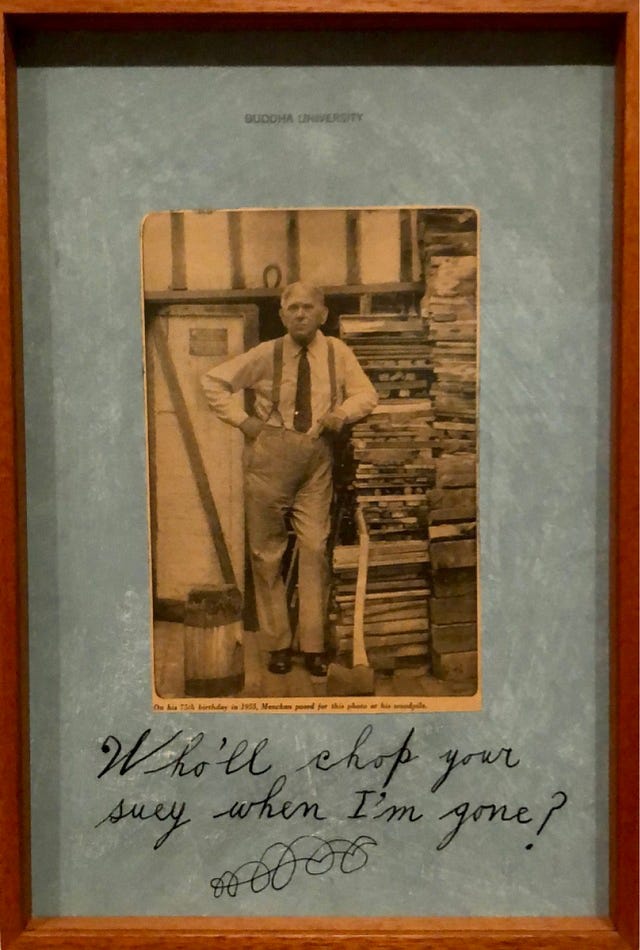 BUDDHA UNIVERSITY
On his 75th birthday in 1955, Mencken posed for this photo at his woodpile.
Who'll chop your
suey when I'm gone?